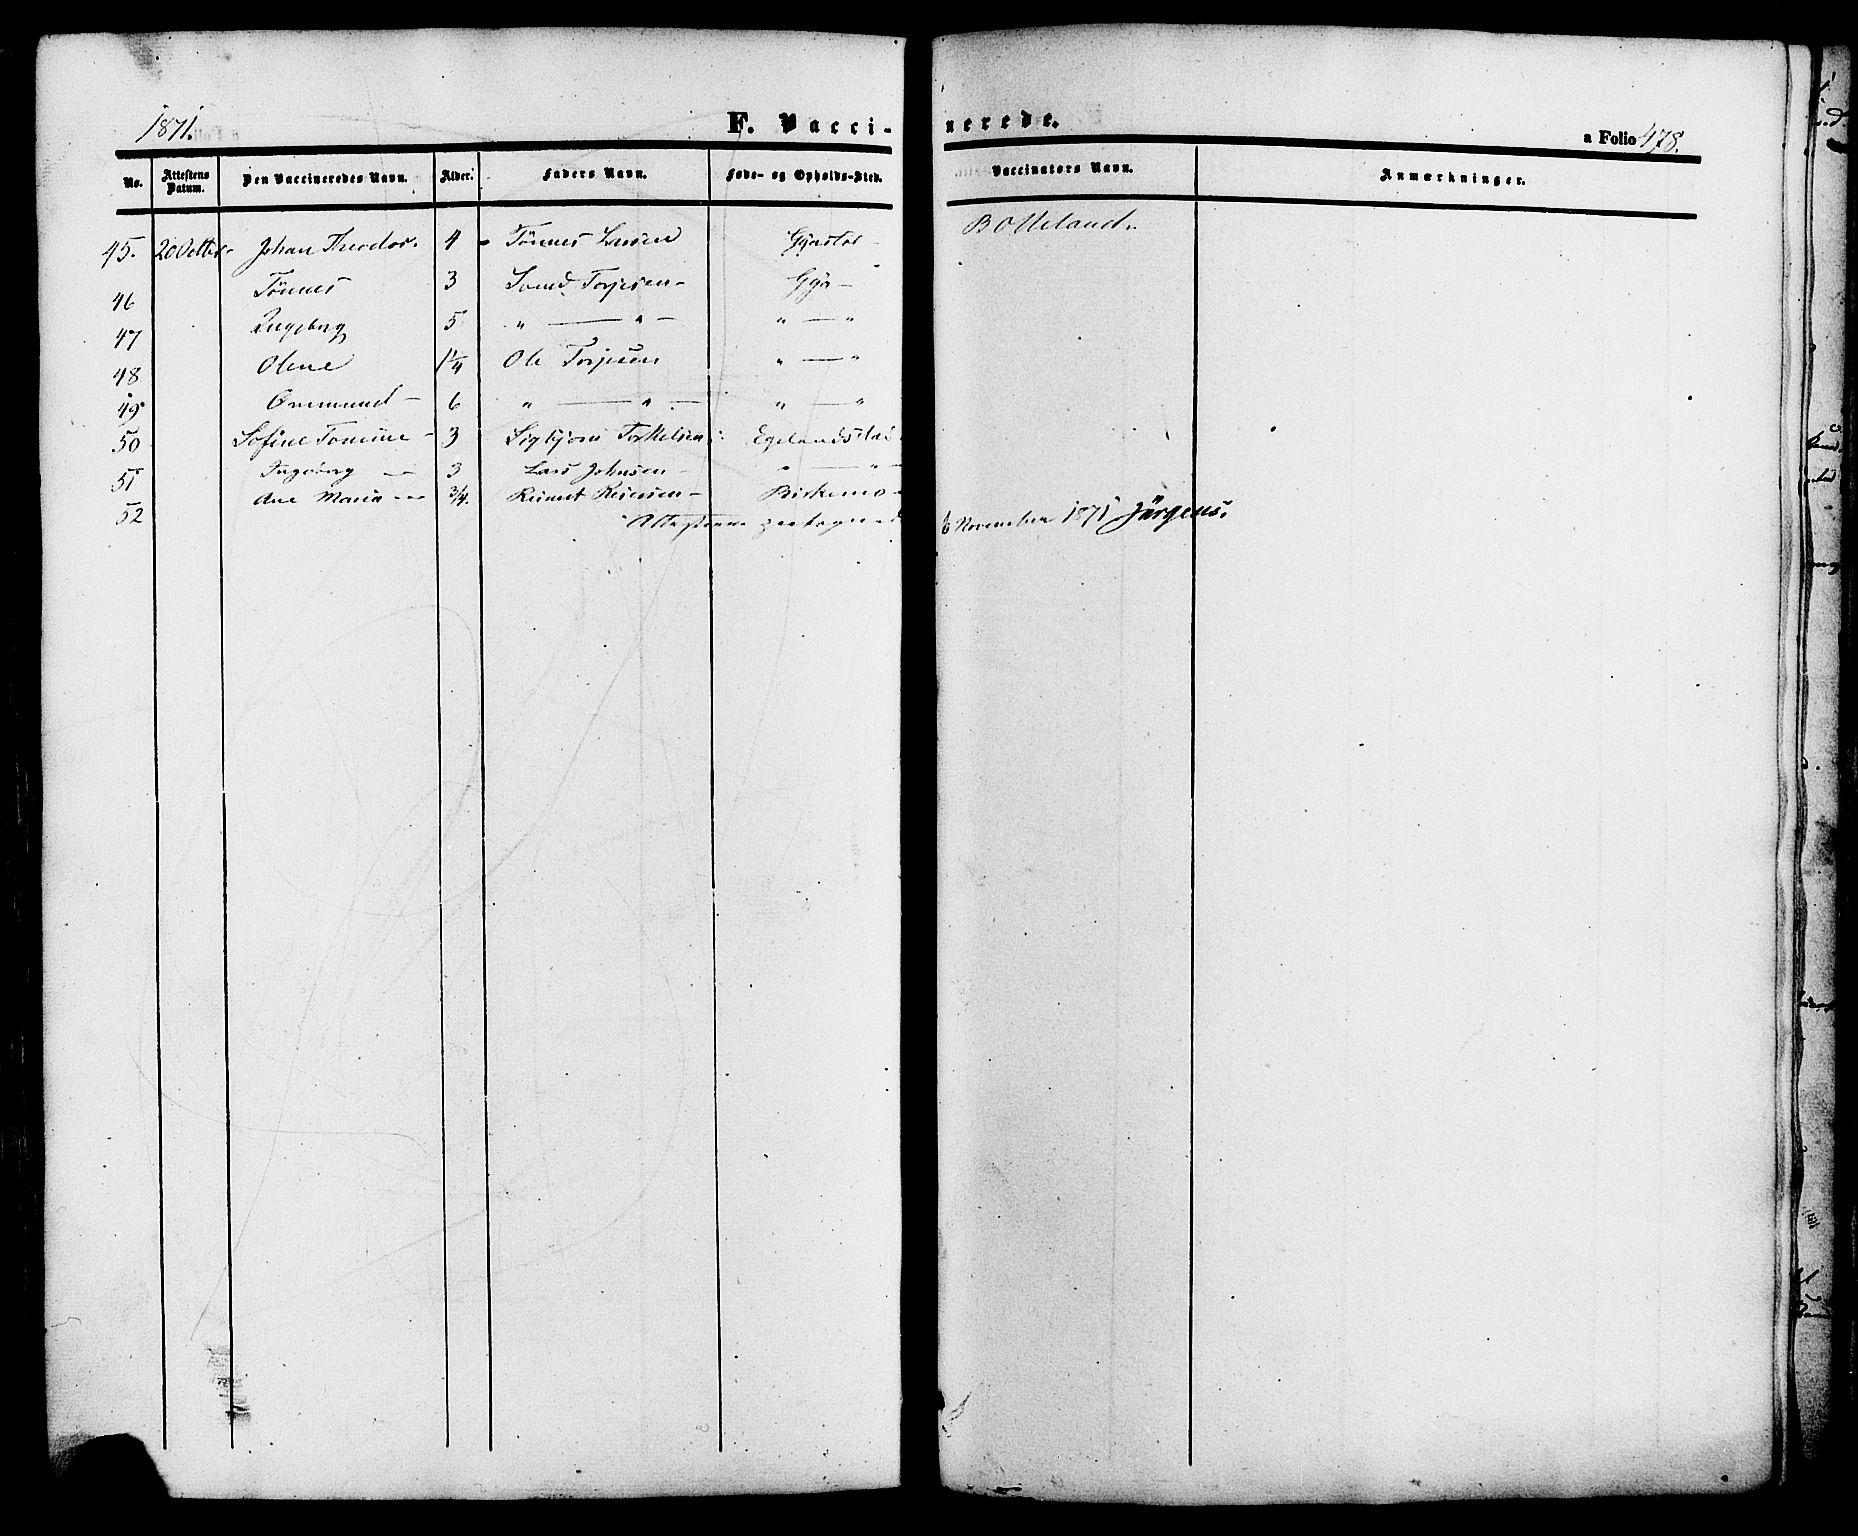 1871. F. Vacci-nerede. a Folio 478.
No. Attestens Datum. Den Vaccineredes Navn. Alder. Faders Navn. Føde- og Opholds-Sted. Vaccinators Navn. Anmærkninger.
45. 20 Johan Theodor. 4 Tønnes Larsen B O
46 Tønnes 3 Torjesen - Gya -
47 Ingeborg 5 " — " - " — "
48 Olene 1 1/4 Ole Torjesen " — "
49 - 6 " — " - " — "
50 Sofine Tomine - 3 Sigbjørn Torkelsen
51 Ingeborg - 3 Lars Johnsen - " — " -
52 Ane Maria - 3/4. - Birkemo -
Attesterne 6 November 1871 Jürgens.